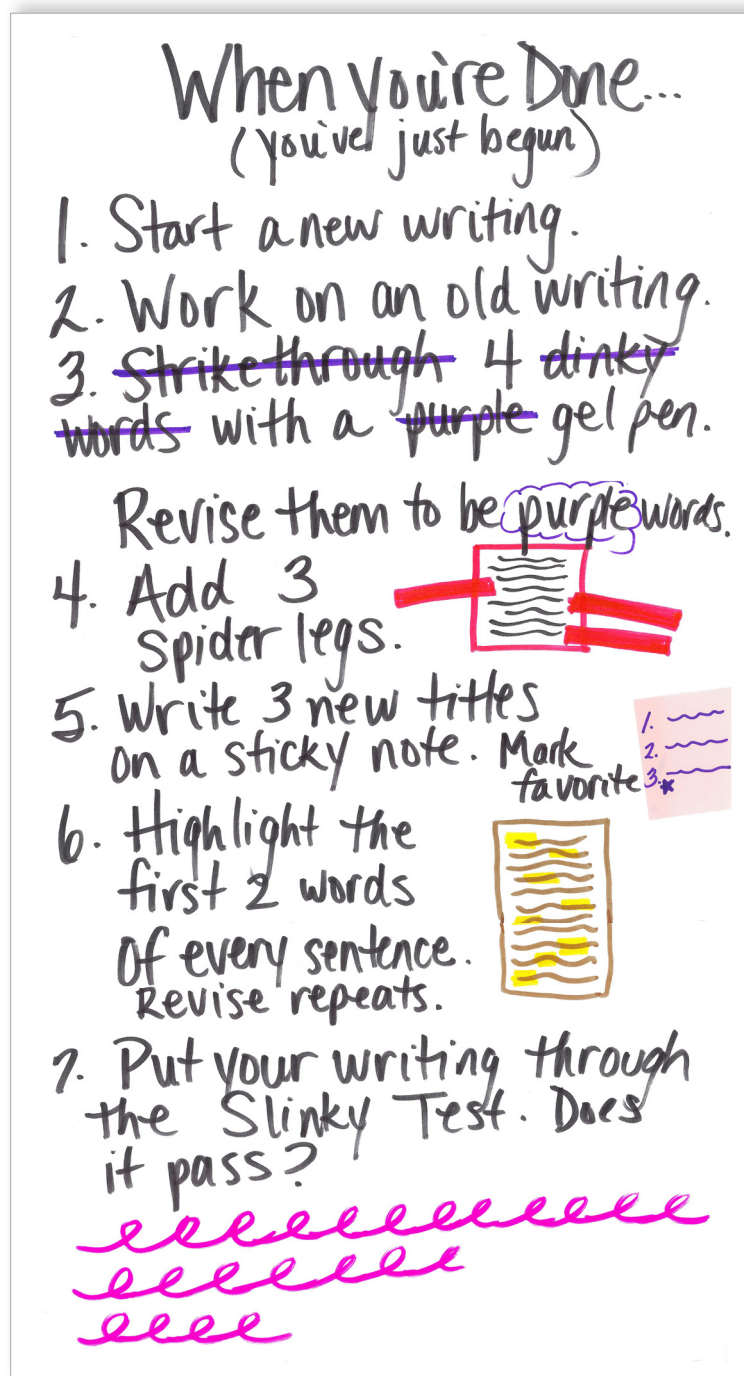 When You're Done...
(you've just begun)
1. Start a new writing.
2. Work on an old writing.
3. Strikethrough 4 dinky
words with a purple gel pen.
Revise them to be purple words.
4. Add 3
spider legs.
5. Write 3 new titles
on a sticky note. Mark
favorite
1.
2.
3.
6. Highlight the
first 2 words
of every sentence.
Revise repeats.
7. Put your writing through
the Slinky Test. Does
it pass?